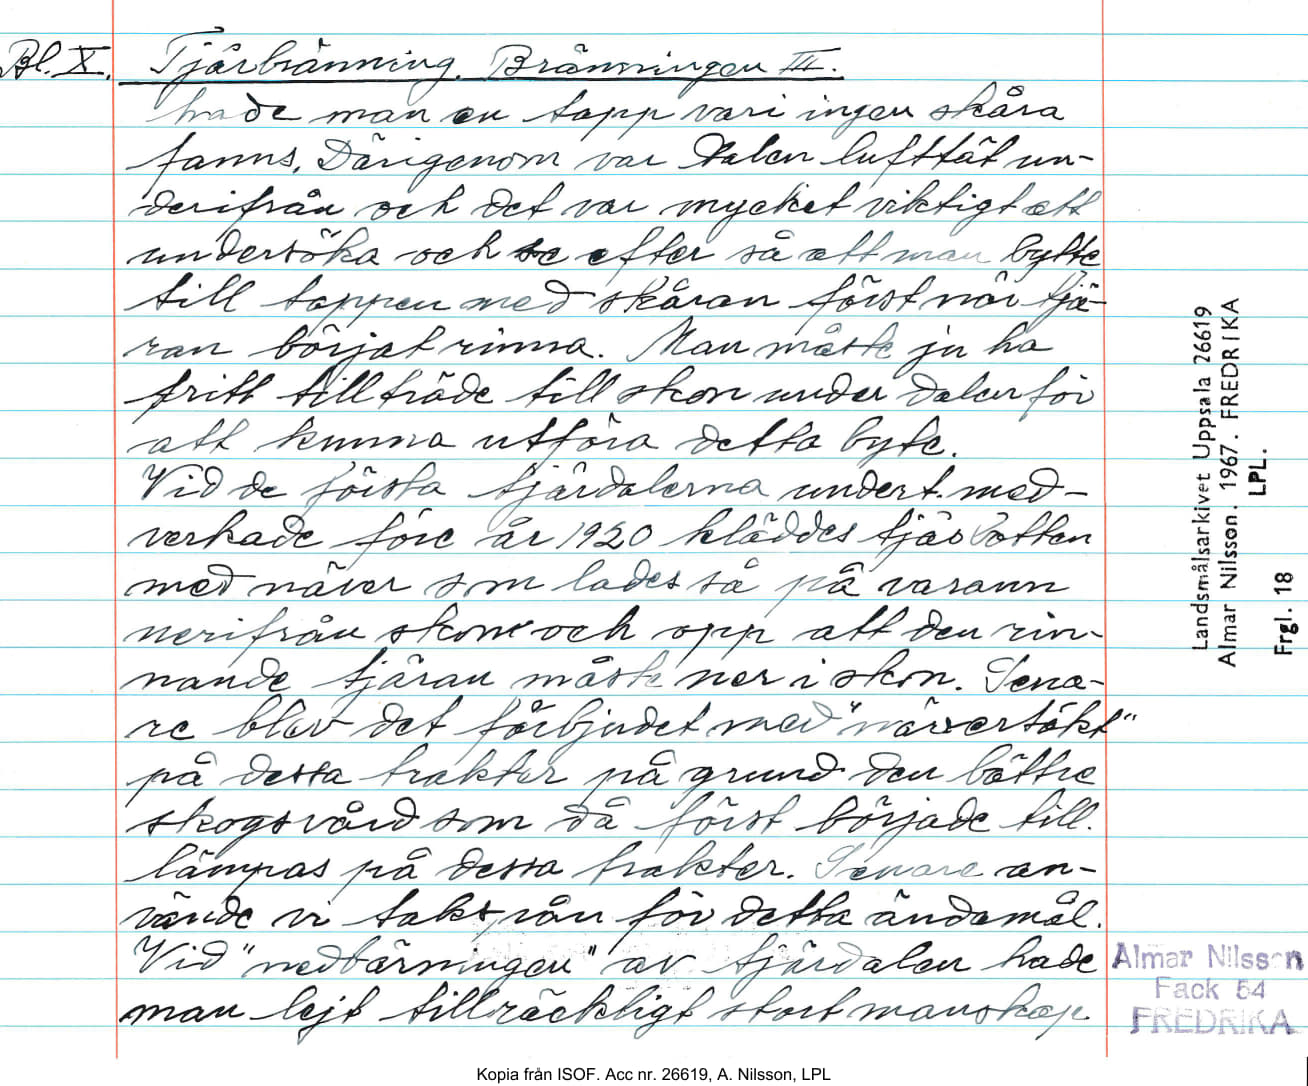 Bl. X. Tjärbränning. Bränningen III.
hade man en tapp vari ingen skåra
fanns. Därigenom var dalen lufttät un-
derifrån och det var mycket viktigt att
undersöka och se efter så att man bytte
till tappen med skåran först när tjä-
ran börjat rinna. Man måste ju ha
fritt tillträde till skon under dalen för
att kunna utföra detta byte.
Vid de första tjärdalerna undert. med-
verkade före år 1920 kläddes tjärbotten
med näver som lades så på varann
nerifrån skon och opp att den rin-
nande tjäran måste ner i skon. Sena-
re blev det förbjudet med "nävertäkt"
på dessa trakter på grund den bättre
skogsvård som då först började till.
lämpas på dessa trakter. Senare an-
vände vi takspån för detta ändamål.
Vid "nedbärningen" av tjärdalen hade
man lejt tillräckligt stort manskap
Landsmålsarkivet Uppsala 26619
Almar Nilsson. 1967. FREDRIKA
LPL.
Frgl. 18
Almar Nilsson
Fack 54
FREDRIKA
Kopia från ISOF. Acc nr. 26619, A. Nilsson, LPL